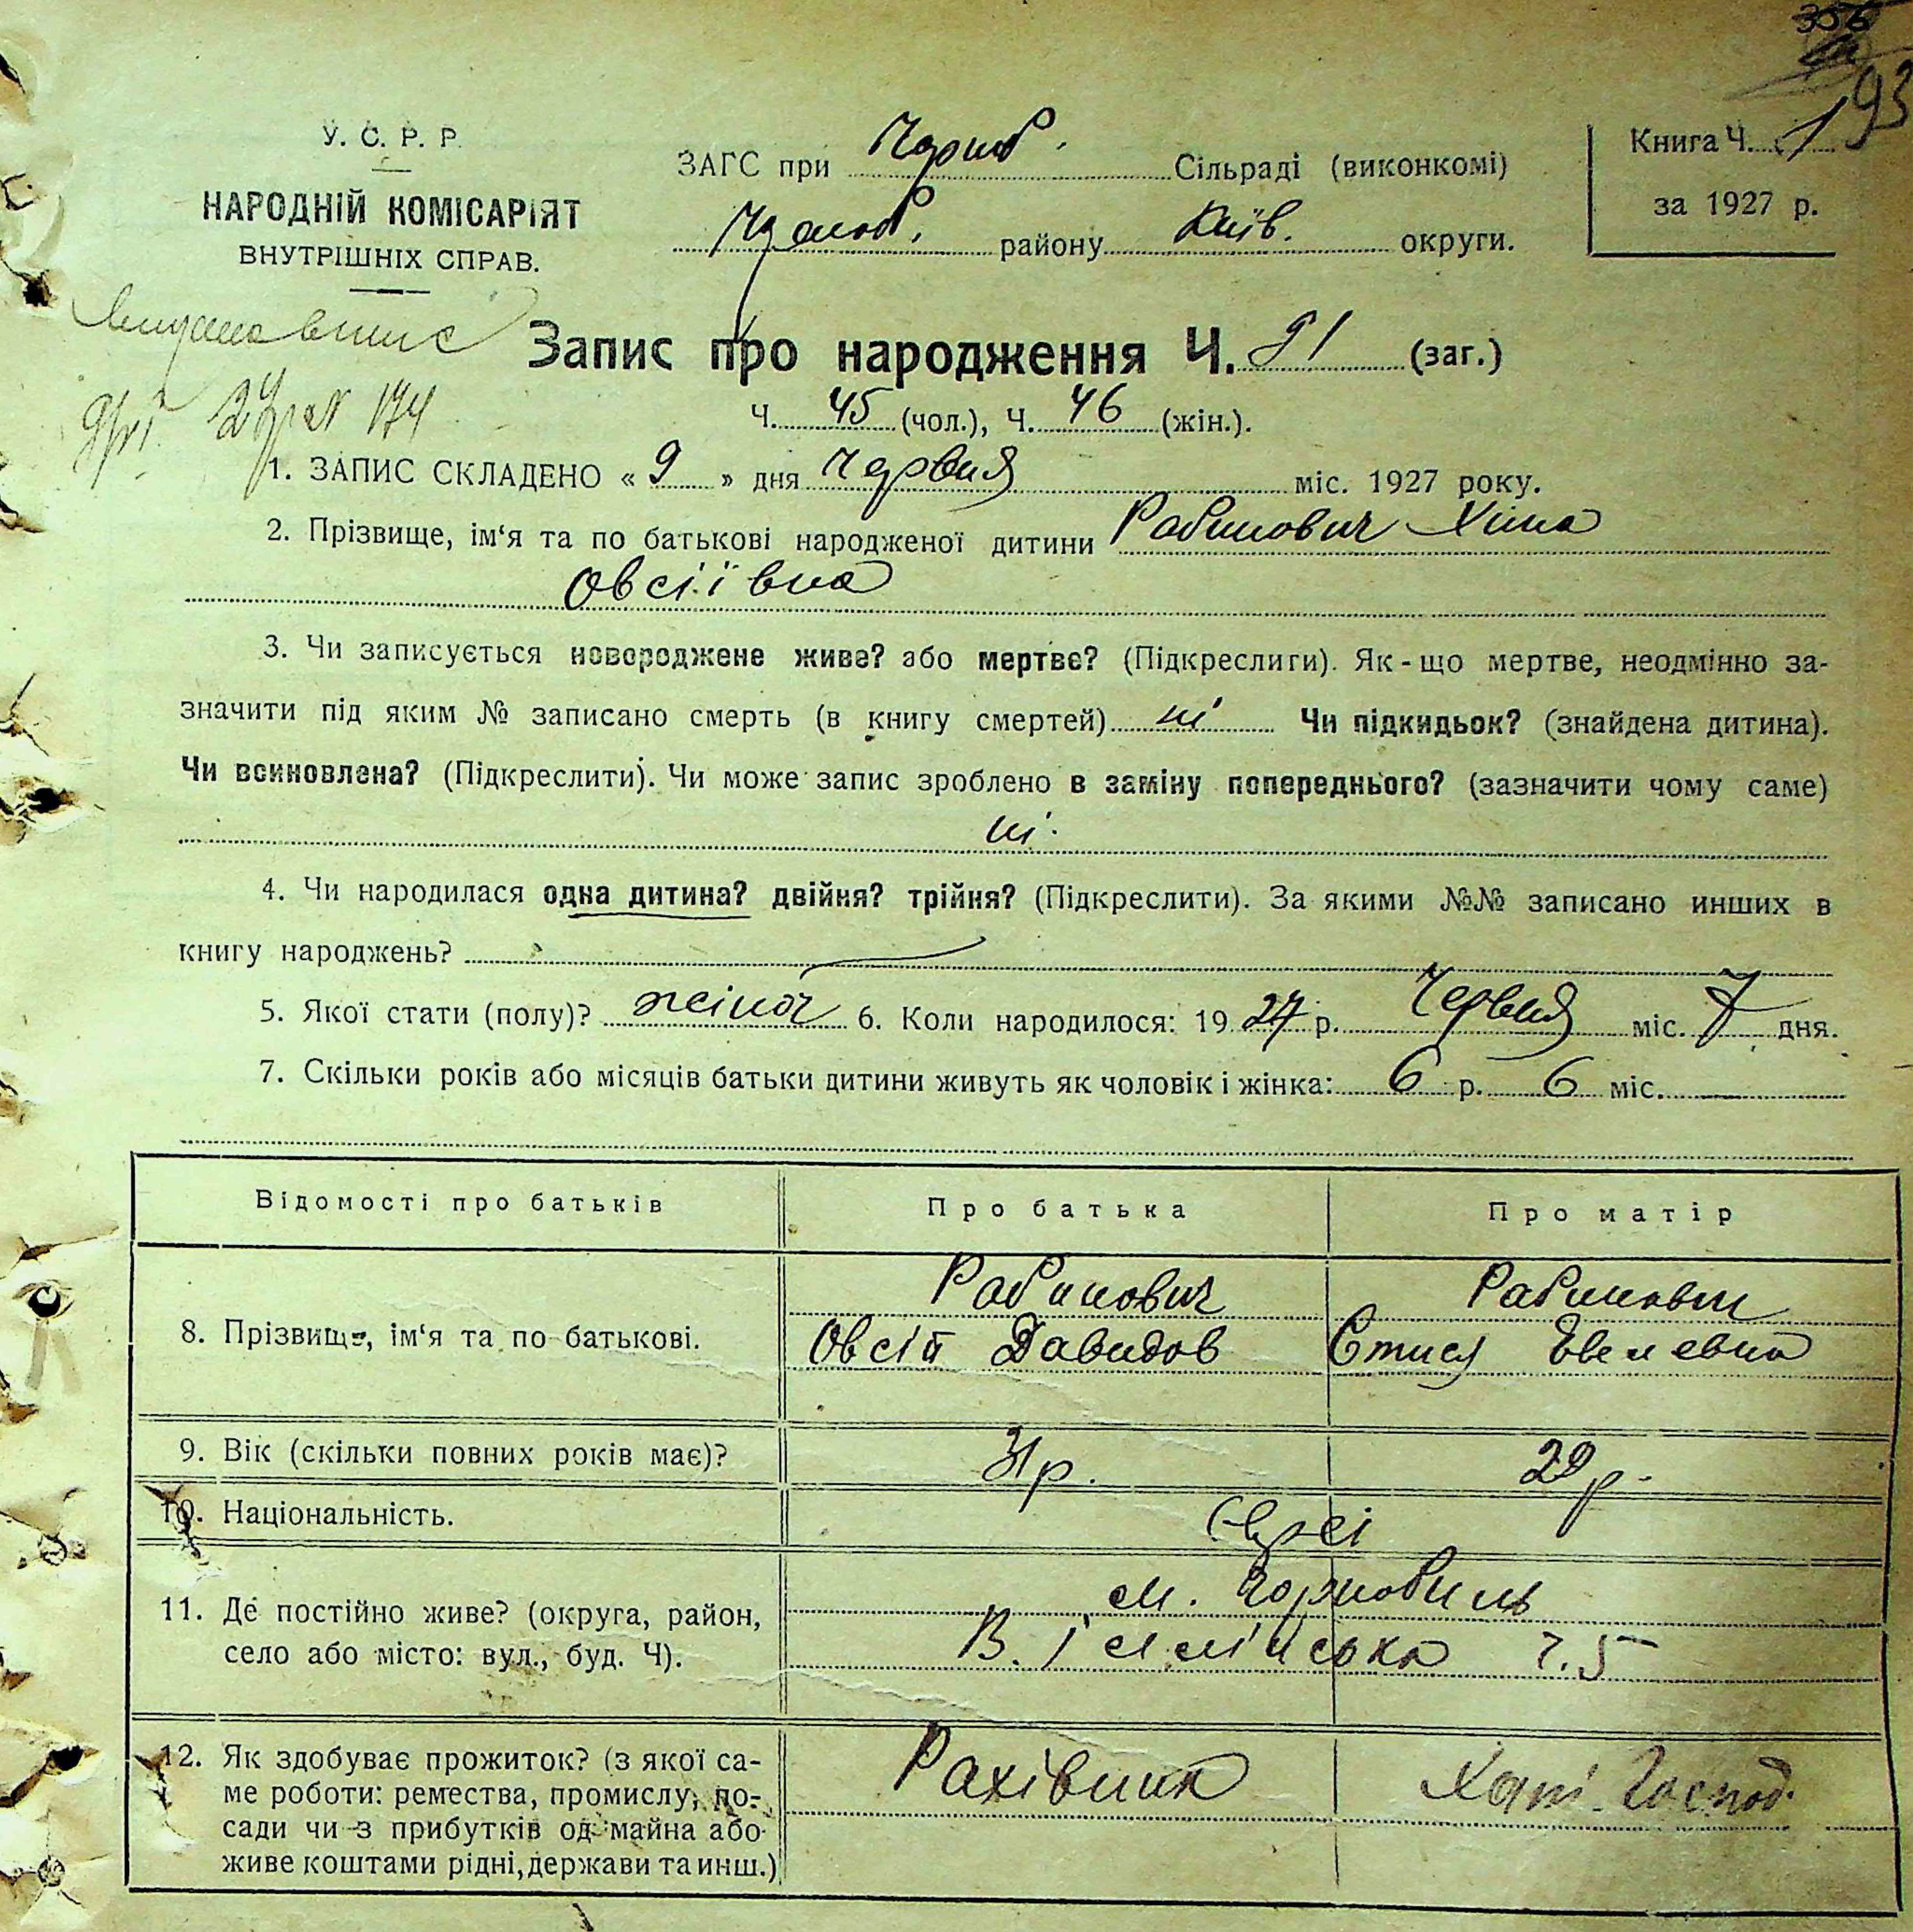 93
У. С. Р. Р.
НАРОДНІЙ КОМІСАРІЯТ
ВНУТРІШНІХ СПРАВ.
ЗАГС при Чорноб. Сільраді (виконкомі)
Чорноб. району Київ. округи.
Книга Ч. 1
за 1927 р.
Запис про народження Ч. 91 (заг.)
174
Ч. 45 (чол.), Ч. 46 (жін.).
1. ЗАПИС СКЛАДЕНО « 9 » дня Червня міс. 1927 року.
2. Прізвище, ім‘я та по батькові народженої дитини Рабинович Хина
Овсіївна
3. Чи записується новороджене живе? або мертве? (Підкреслиги). Як-що мертве, неодмінно за-
значити під яким № записано смерть (в книгу смертей) ні Чи підкидьок? (знайдена дитина).
Чи всиновлена? (Підкреслити). Чи може запис зроблено в заміну попереднього? (зазначити чому саме)
ні.
4. Чи народилася одна дитина? двійня? трійня? (Підкреслити). За якими №№ записано инших в
книгу народжень?
5. Якої стати (полу)? жіноч 6. Коли народилося: 1927 р. Червня міс. 7 дня.
7. Скільки років або місяців батьки дитини живуть як чоловік і жінка: 6 р. 6 міс.
Відомості про батьків Про батька Про матір
Рабинович Рабинович
8. Прізвище, ім‘я та по батькові. Овсій Давидов Евелевна
9. Вік (скільки повних років має)? 31 р. 29 р.
10. Національність. Євреї
м. Чорнобиль
11. Де постійно живе? (округа, район,
село або місто: вул., буд. Ч). В. ч. 5
12. Як здобуває прожиток? (з якої са-
ме роботи: ремества, промислу, по-
сади чи з прибутків од майна або
живе коштами рідні, держави та инш.)
Рахівник Хатн. Господ.